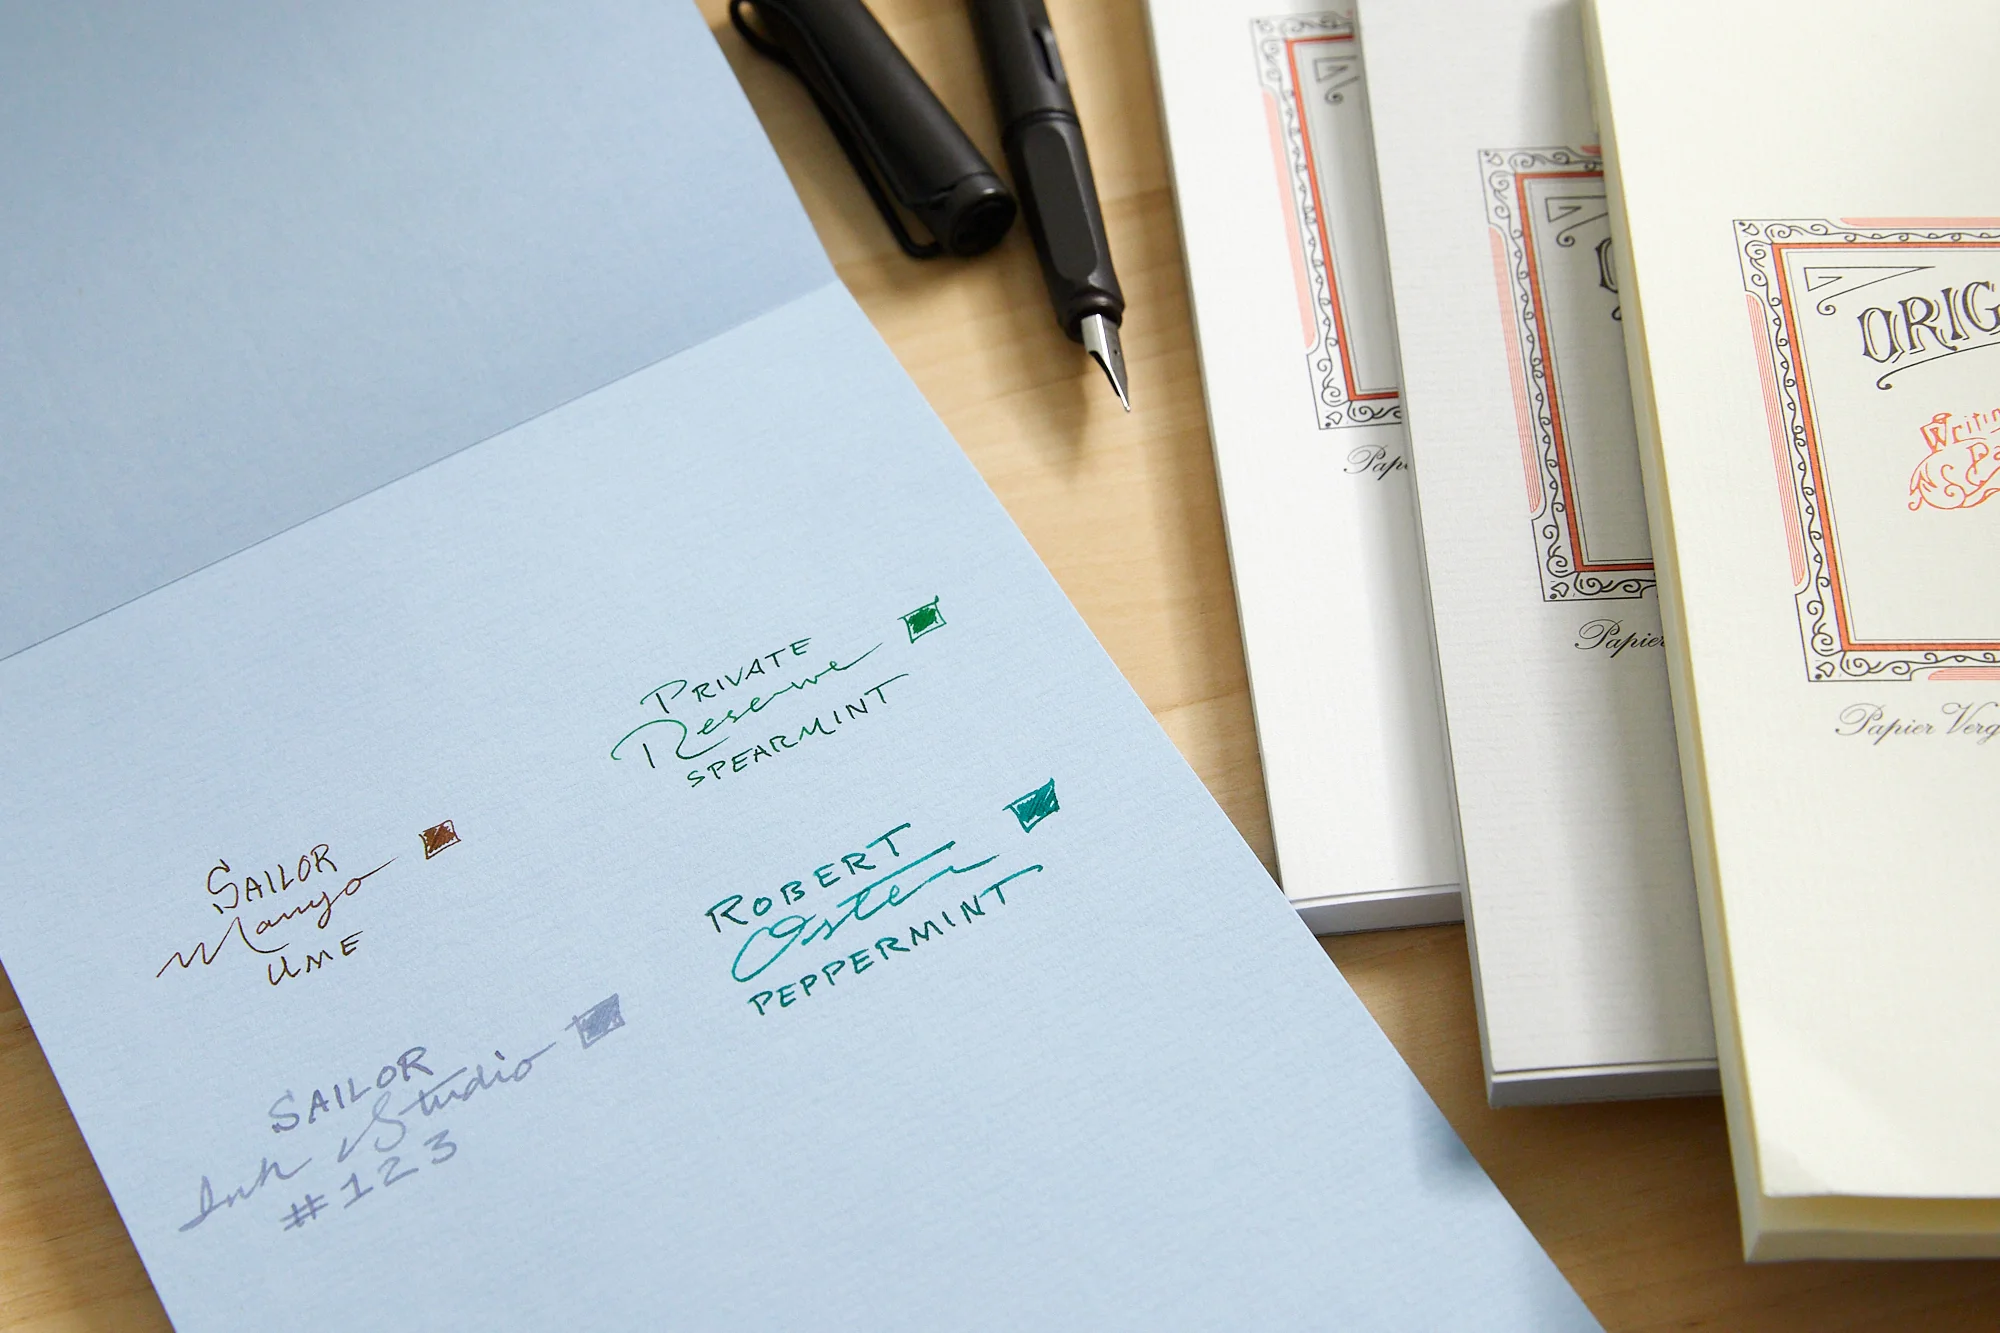 PRIVATE
Reserve
SPEARMINT
SAILOR
Manyo
UME
ROBERT
Oster
PEPPERMINT
SAILOR
Ink Studio
#123
Papier
ORIG
Writin
Papier Verg